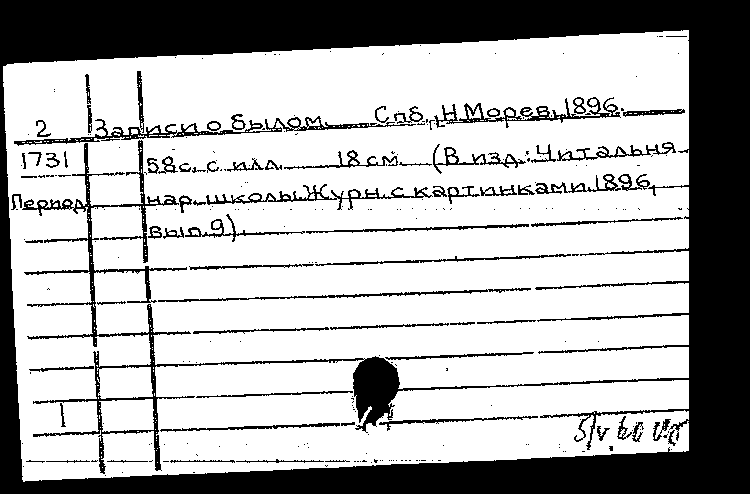 2 Записи о былом. Спб., Н.Морев, 1896.
1731 58 с. с илл. 18 см. (В изд.: Читальня
Период. нар. школы. Журн. с картинками. 1896,
вып. 9).
1
5/V 60